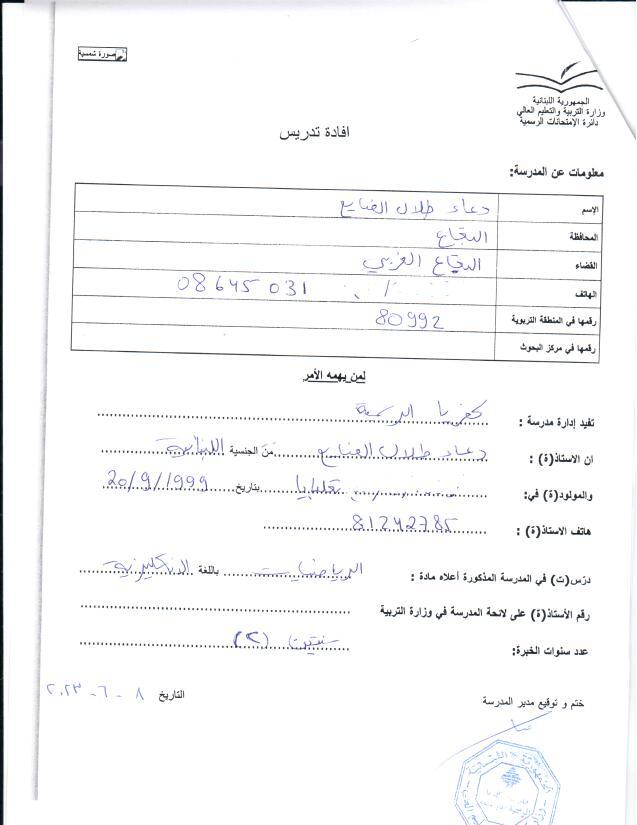 صورة شمسية
الجمهورية اللبنانية
وزارة التربية والتعليم العالي
دائرة الإمتحانات الرسمية
افادة تدريس
معلومات عن المدرسة:
الإسم دعاء طلال الضايع
المحافظة البقاع
القضاء البقاع الغربي
الهاتف 08 645 031
رقمها في المنطقة التربوية 80992
رقمها في مركز البحوث
لمن يهمه الأمر
تفيد إدارة مدرسة : كفريا الرسمية
ان الاستاذ(ة) : دعاء طلال الضايع من الجنسية اللبنانية
والمولود(ة) في: تعلبايا بتاريخ 20/9/1999
هاتف الاستاذ(ة) : 81242785
درّس(ت) في المدرسة المذكورة أعلاه مادة : الرياضيات باللغة الانكليزية
رقم الأستاذ(ة) على لائحة المدرسة في وزارة التربية
عدد سنوات الخبرة: سنتين (٢)
ختم و توقيع مدير المدرسة
التاريخ ٨ - ٦ - ٢٠٢٣